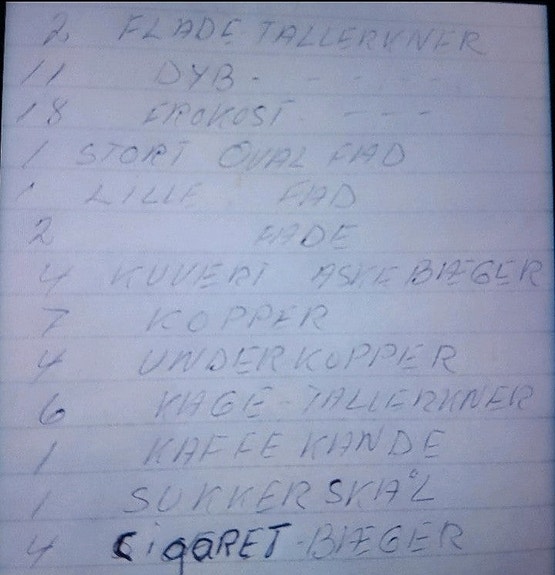 2 FLADE TALLERKNER
11 DYB - - - - -
18 FROKOST - - -
1 STORT OVAL FAD
1 LILLE FAD
2 FADE
4 KUVERT ASKEBÆGER
7 KOPPER
4 UNDERKOPPER
6 KAGE-TALLERKNER
1 KAFFE KANDE
1 SUKKER SKÅL
4 CigaRET-BÆGER